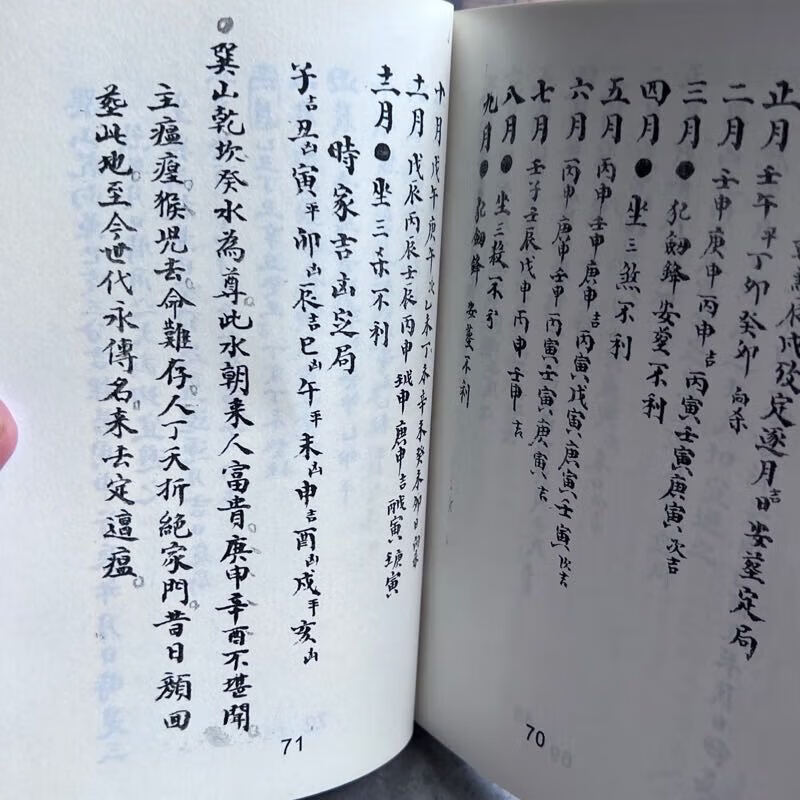 辰戌效定逐月吉日安葬定局
正月 壬午平丁卯癸卯向杀
二月 壬申庚申丙申吉丙寅壬寅庚寅次吉
三月●犯劍鋒安葬不利
四月●坐三煞不利
五月 丙申壬申庚申吉丙寅戊寅庚寅壬寅次吉
六月 丙申庚申壬申丙寅壬寅庚寅吉
七月 壬子壬辰戊申丙申壬申吉
八月●坐三殺不兮
九月●犯劍鋒安葬不利
70
十月 戊午庚午次乙未丁未辛未癸未卯日
十一月 戊辰丙辰壬辰丙申 申庚申吉 寅 寅
十二月●坐三杀不利
時家吉凶定局
子吉丑凶寅平卯凶辰吉巳凶午平未凶申吉酉凶戌平亥凶
巽山乾坎癸水為尊。此水朝来人富貴。庚申辛酉不堪聞
主瘟㾮猴咒去命難存。人丁夭折絕家門。昔日顏回
塟此地。至今世代永傳名。来去定遭瘟。
71